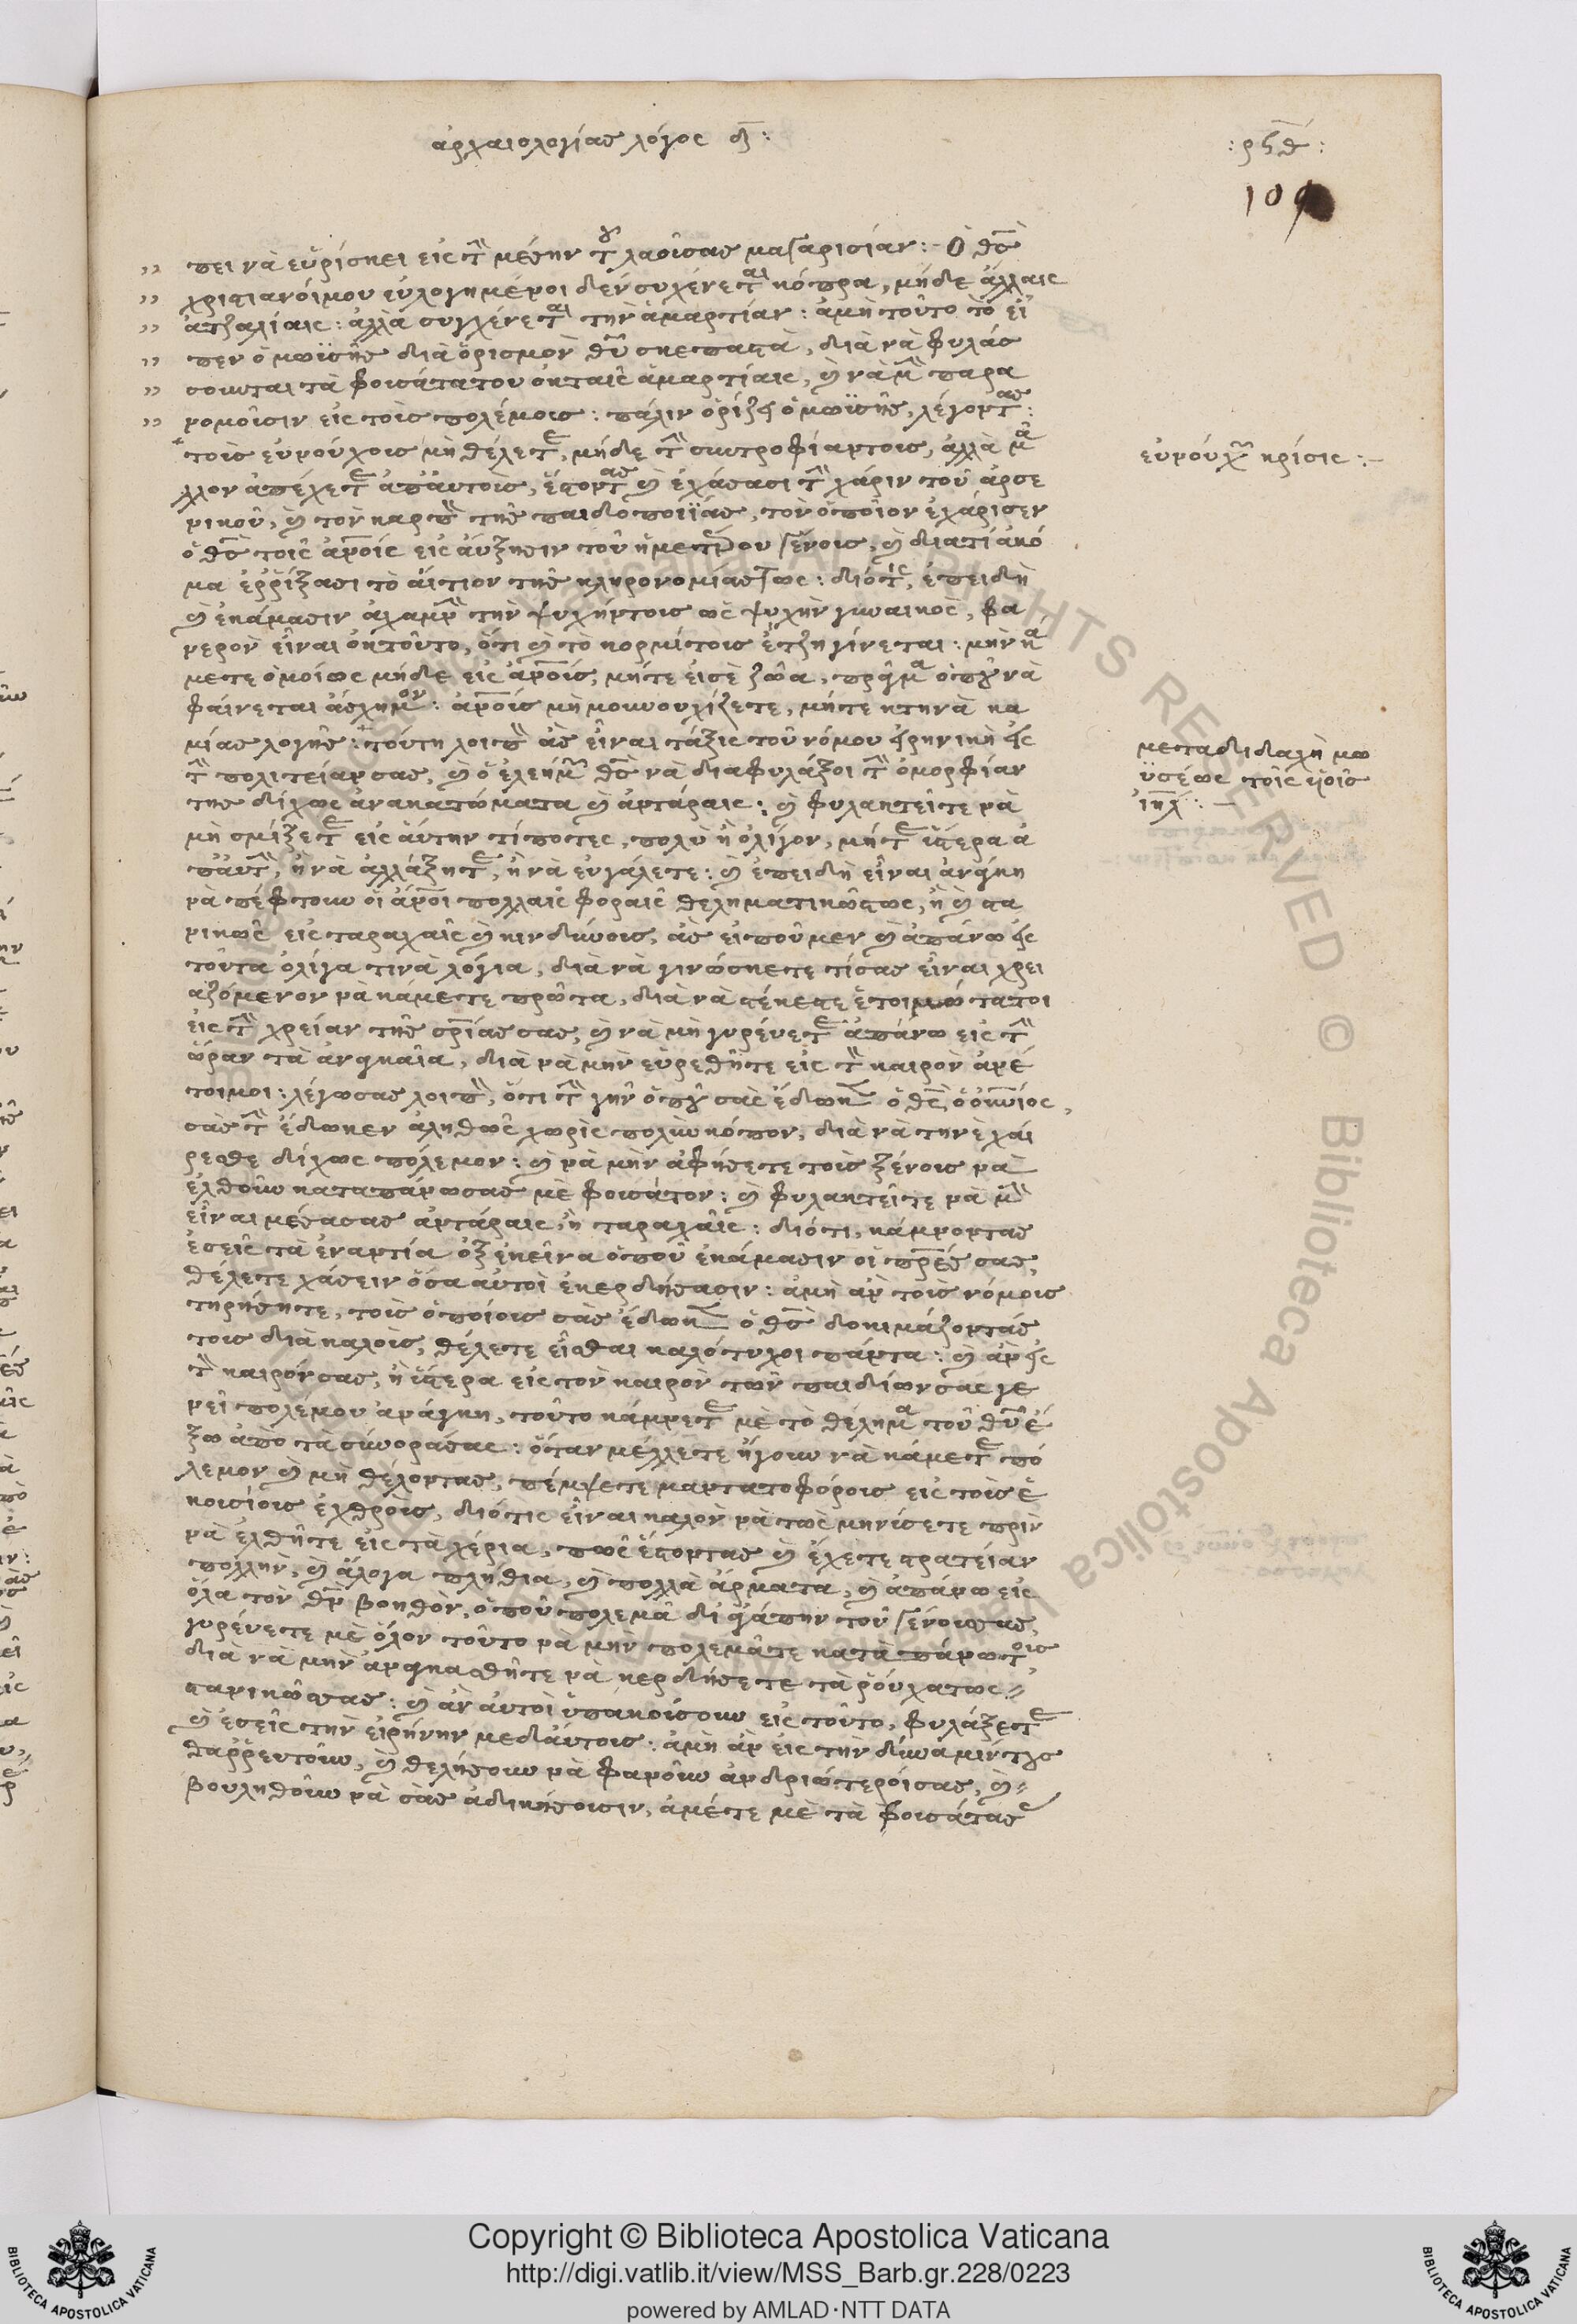 ἀρχαιολογίας λόγος δ̄:
:ρϟθ:
109
πει νὰ εὑρίσκει εἰς τὴ μέσην τοῦ λαοῦ σας μαγαρισίαν:- Ὁ θς̄
χριστιανοί μου εὐλογημένοι δὲν συχένεται κόπρα, μήδε ἄλλαις
ἀτζαλίαις: ἀλλὰ συγχένεται τὴν ἁμαρτίαν: ἀμὴ τοῦτο τὸ εἶ
πεν ὁ μωϋσῆς διὰ ὁρισμὸν θῦ σκεπαστὰ, διὰ νὰ φυλάσ
σωνται τὰ φουσάτα του ἐκ ταῖς ἁμαρτίαις, καὶ νὰ μὴ παρα
νομοῦσιν εἰς τοὺς πολέμους: πάλιν ὁρίζει ὁ μωϋσῆς, λέγοντας:
τοὺς εὐνούχους μὴ θέλετε, μήδε τὴ συντροφίαν τους, ἀλλὰ μᾶ
λλον ἀπέχετε ἀπ' αὐτους, ἔστοντας καὶ ἐχάσασι τὴ χάριν τοῦ ἀρσε
νικοῦ, καὶ τὸν καρπὸ τῆς παιδοποιΐας, τὸν ὁποῖον ἐχάρισεν
ὁ θς̄ τοῖς ἀνοῖς εἰς αὔξησιν τοῦ ἡμετέρου γένους, καὶ διατὶ ἀκό
μα ἐρρίξασι τὸ αἴτιον τῆς κληρονομίας τως: διότις, ἐπειδὴ
καὶ ἐκάμασιν ἀχαμνὴ τὴν ψυχήν τους ὡς ψυχὴν γυναικὸς, φα
νερὸν εἶναι ἐκ τοῦτο, ὅτι καὶ τὸ κορμί τους ἔτζη γίνεται: μὴν κά
μετε ὁμοίως μήδε εἰς ἀνοὺς, μήτε εἰσὲ ζῶα, πρᾶγμα ὁποῦ νὰ
φαίνεται ἄσχημον: ἀνοὺς μὴ μουνουχίζετε, μήτε κτηνὰ κα
μίας λογῆς: τούτη λοιπὸ ἂς εἶναι τάξις τοῦ νόμου εἰρηνικὴ εἰς
τὴ πολιτείαν σας, καὶ ὁ ἐλεήμων θς̄ νὰ διαφυλάξοι τὴ ὀμορφίαν
της δίχως ἀνακατώματα καὶ ἀντάραις: καὶ φυλακτεῖτε νὰ
μὴ σμίξετε εἰς αὔτην τίποτες, πολὺ ἢ ὀλίγον, μήτε ὕστερα ἀ
π' αυτὴ, ἢ νὰ ἀλλάξητε, ἢ νὰ εὐγάλετε: καὶ ἐπειδὴ εἶναι ἀνάγκη
νὰ πέφτουν οἱ ἄνοι πολλαῖς φοραῖς θεληματικῶς τως, ἢ καὶ στα
νικῶς εἰς ταραχαῖς καὶ κινδύνους, ἂς εἰποῦμεν καὶ ἀπάνω εἰς
τοῦτα ὀλίγα τινὰ λόγια, διὰ νὰ γινώσκετε τί σας εἶναι χρει
αζόμενον νὰ κάμετε πρῶτα, διὰ νὰ στέκετε ἑτοιμώτατοι
εἰς τὴ χρείαν τῆς σρίας σας, καὶ νὰ μὴ γυρεύετε ἀπάνω εἰς τὴ
ὥραν τὰ ἀναγκαῖα, διὰ νὰ μὴν εὑρεθῆτε εἰς τὸ καιρὸν ἀνέ
τοιμοι: λέγω σας λοιπὸ, ὅτι τὴ γῆν ὁποῦ σᾶς ἔδωκεν ὁ θς̄ ὁ οὐνιος,
σᾶς τὴ ἔδωκεν ἀληθῶς χωρὶς πολὺν κόπον, διὰ νὰ τηνὲ χαί
ρεσθε δίχως πόλεμον: καὶ νὰ μὴν ἀφήσετε τοὺς ξένους νὰ
ἐλθοῦν καταπάνω σας μὲ φουσάτον: καὶ φυλακτεῖτε νὰ μὴ
εἶναι μέσα σας ἀντάραις, ἢ ταραχαῖς: διότι, κάμνοντας
ἐσεῖς τὰ ἐναντία ἐξ ἐκεῖνα ὁποῦ ἐκάμασιν οἱ πρές σας,
θέλετε χάσειν ὅσα αὐτοὶ ἐκερδήσασιν: ἀμὴ ἂν τοὺς νόμους
τηρήσητε, τοὺς ὁποίους σᾶς ἔδωκεν ὁ θς̄ δοκιμάζοντάς
τους διὰ καλοὺς, θέλετε εἶσθαι καλότυχοι πάντα: καὶ ἂν εἰς
τὸ καιρόν σας, ἢ ὕστερα εἰς τὸν καιρὸν τῶν παιδίων σας γε
νεῖ πολέμου ἀνάγκη, τοῦτο κάμνετε μὲ τὸ θέλημα τοῦ θῦ ἔ
ξω ἀπὸ τὰ σύνορά σας: ὅταν μέλλετε ἤγουν νὰ κάμετε πό
λεμον καὶ μὴ θέλοντας, πέμψετε μαντατοφόρους εἰς τοὺς ἑ
κουσίους ἐχθροὺς, διότις εἶναι καλὸν νὰ τῶς μηνύσετε πρὶν
νὰ ἐλθῆτε εἰς τὰ χέρια, πῶς ἔστοντας καὶ ἔχετε στρατείαν
πολλὴν, καὶ ἄλογα πλήθια, καὶ πολλὰ ἄρματα, καὶ ἀπάνω εἰς
ὅλα τὸν θν̄ βοηθὸν, ὁποῦ πολεμᾶ δι' ἀγάπην τοῦ γένους σας,
γυρεύετε μὲ ὅλον τοῦτο νὰ μὴν πολεμᾶτε κατὰ πάνω τους,
διὰ νὰ μὴν ἀναγκασθῆτε νὰ κερδήσετε τὰ ῥοῦχα τως
στανικῶς σας: καὶ ἂν αὐτοὶ ὑπακούσουν εἰς τοῦτο, φυλάξετε
καὶ ἐσεῖς τὴν εἰρήνην μεδ' αὐτους: ἀμὴ ἂν εἰς τὴν δύναμίν τους
θαρρευτοῦν, καὶ θελήσουν νὰ φανοῦν ἀνδριώτεροί σας, καὶ
βουληθοῦν νὰ σᾶς ἀδικήσουσιν, ἀμέτε μὲ τὰ φουσάτα σας
εὐνούχων κρίσις:-
μεταδιδαχὴ μω
ϋσέως τοῖς υἱοῖς
ἰηλ:-